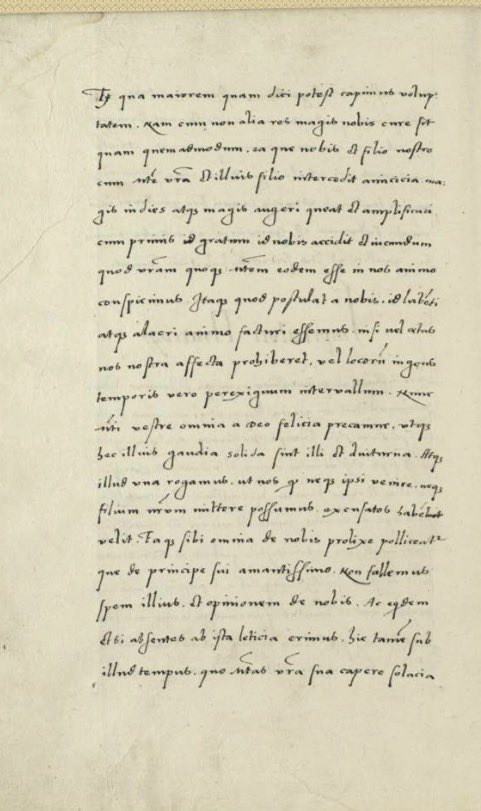 Ex qua maiorem quam dici potest capimus volup-
tatem. Nam cum non alia res magis nobis cure sit
quam quemadmodum, ea que nobis et filio nostro
cum Mte vra et illius filio intercedit amicicia ma-
gis in dies atqȝ magis augeri queat et amplificari
cum primis id gratum id nobis accidit et iucundum
quod vram quoqȝ Mtem eodem esse in nos animo
conspicimus. Itaqȝ quod postulat a nobis, id libeti
atqȝ alacri animo facturi essemus, nisi vel etas
nos nostra affecta prohiberet, vel locorū ingens
temporis vero perexiguum intervallum. Nunc
Mti vestre omnia a deo felicia precamur, utqȝ
hec illius gaudia solida sint illi et diuturna. Atqȝ
illud una rogamus, ut nos qȝ neqȝ ipsi venire, neqȝ
filium nrum mittere possumus, excusatos habē
velit. Eaqȝ sibi omnia de nobis prolixe polliceatr
que de principe sui amantissimo. Non fallemus
spem illius, et opinionem de nobis. Ac eqdem
etsi absentes ab ista leticia erimus, hic tamē sub
illud tempus, quo Mtas vra sua capere solacia